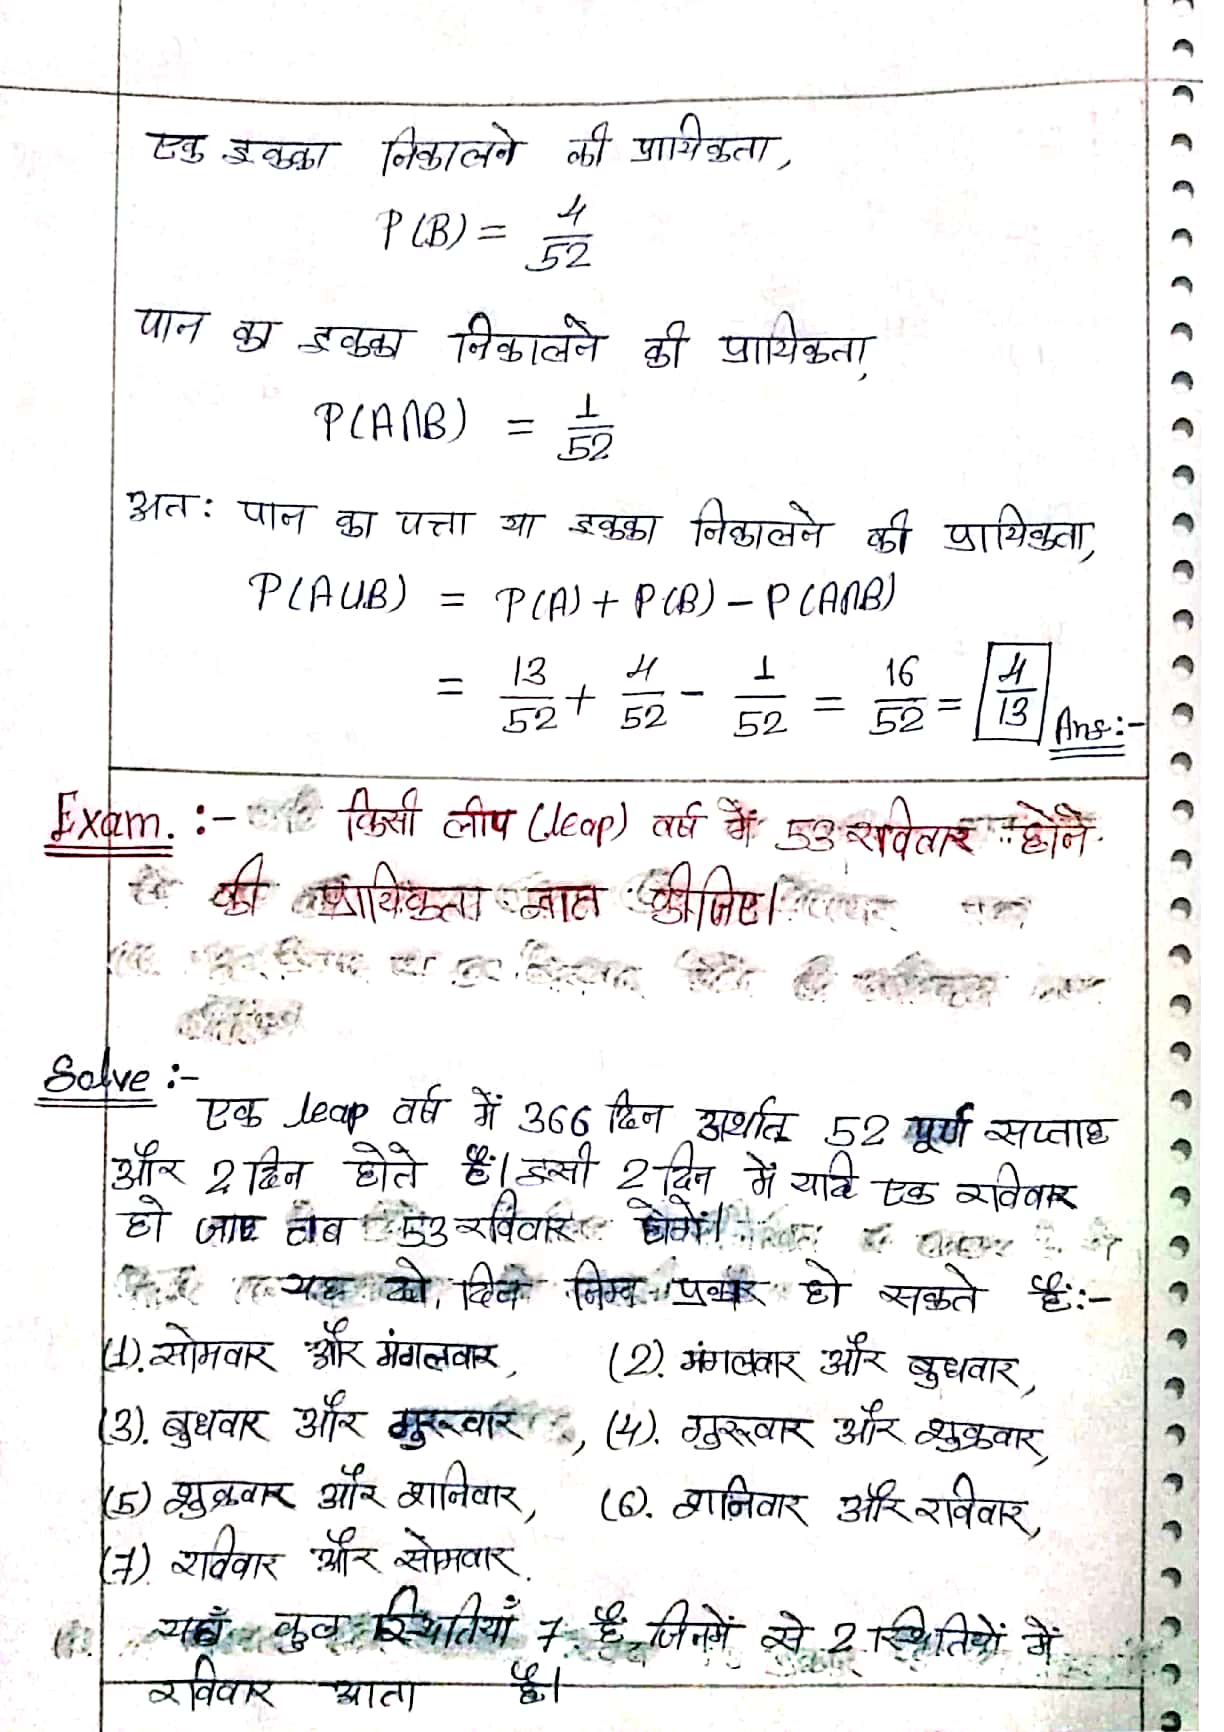 एक इक्का निकालने की प्रायिकता,
P(B) = 4/52
पान का इक्का निकालने की प्रायिकता,
P(A∩B) = 1/52
अतः पान का पत्ता या इक्का निकालने की प्रायिकता,
P(A∪B) = P(A) + P(B) - P(A∩B)
= 13/52 + 4/52 - 1/52 = 16/52 = 4/13 Ans:-
Exam. :- किसी लीप (leap) वर्ष में 53 रविवार होने
की प्रायिकता ज्ञात कीजिए।
Solve :-
एक leap वर्ष में 366 दिन अर्थात 52 पूर्ण सप्ताह
और 2 दिन होते हैं। इसी 2 दिन में यदि एक रविवार
हो जाए तब 53 रविवार होंगे।
यह दो दिन निम्न प्रकार हो सकते हैं:-
(1). सोमवार और मंगलवार, (2). मंगलवार और बुधवार,
(3). बुधवार और गुरूवार, (4). गुरूवार और शुक्रवार,
(5) शुक्रवार और शनिवार, (6). शनिवार और रविवार,
(7). रविवार और सोमवार.
यहाँ कुल स्थितियाँ 7 हैं जिनमें से 2 स्थितियों में
रविवार आता है।